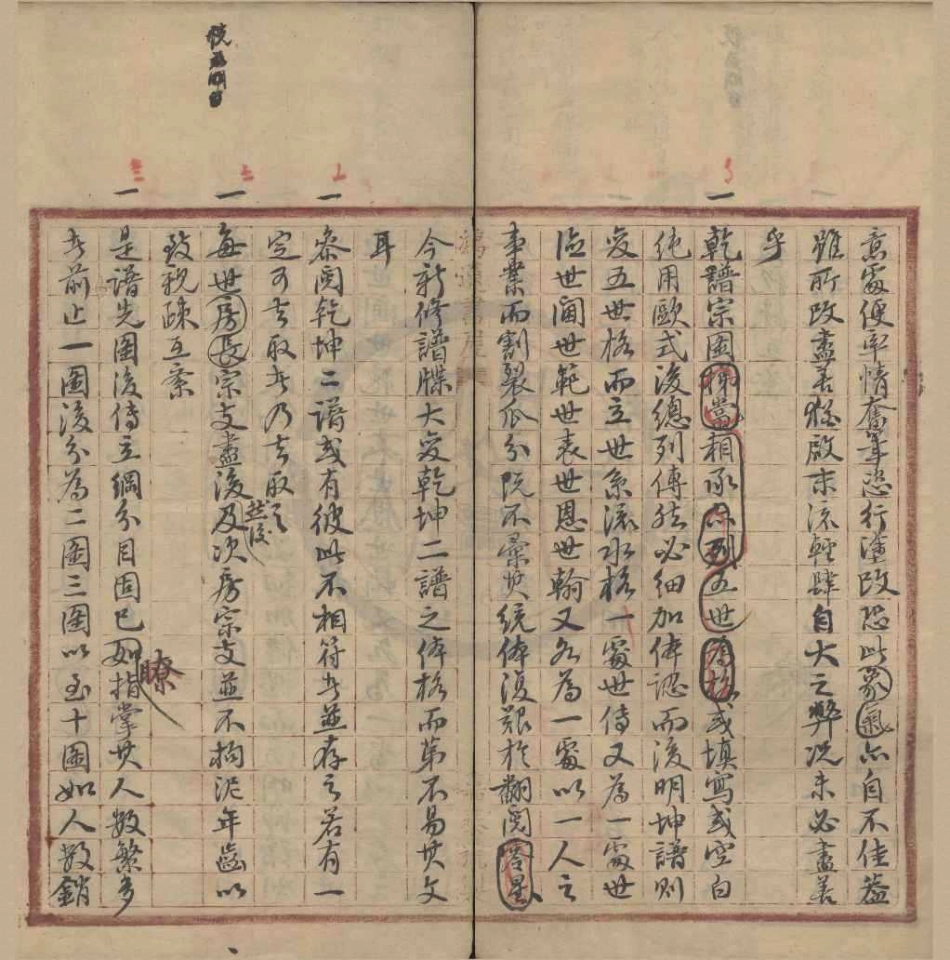 意處便率情奮筆恣行塗改恐此象氣亦自不佳蓋
雖所改盡善猶啟末流輕肆自大之弊况未必盡善
乎
乾譜宗圖 相承 列五世為格或填寫或空白
純用歐式後總列傳然必細加体認而後明坤譜則
變五世格而立世系流水格一處世傳又為一處世
 世 世範世表世恩世翰又各為一處以一人之
事業而割裂瓜分既不彙其統体復艱於翻閱
今新修譜牒大變乾坤二譜之体格而第不易其文
耳
叅閱乾坤二譜或有彼此不相符者並存之若有一
定可去取者乃去取之
每世房長宗支盡後然後及次房宗支並不拘泥年齒以
致親疎互紊
是譜先圖後傳立綱分目固已瞭如指掌其人數繁多
者前止一圖後分為二圖三圖以至十圖如人數銷